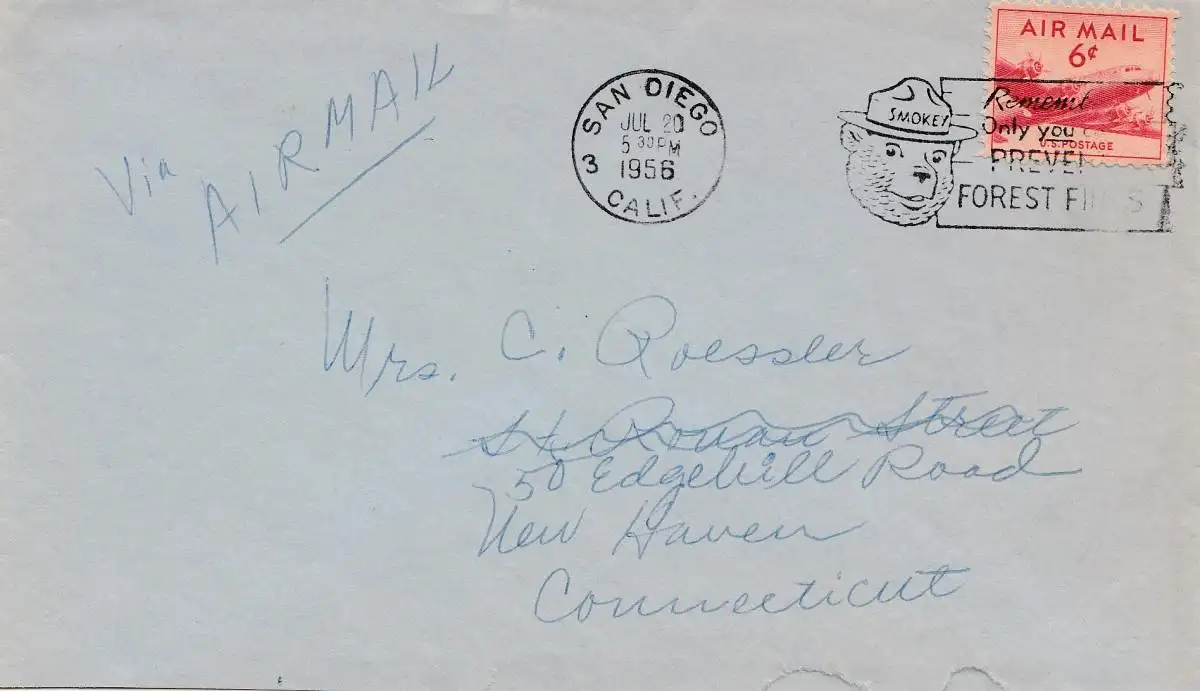 AIR MAIL
6¢
U.S. POSTAGE
SAN DIEGO
JUL 20
5 30 PM
1956
3
CALIF.
SMOKEY
Only you
PREVE
FOREST FI S
Via AIRMAIL
Mrs. C. Roessler
Street
50 Edgehill Road
New Haven
Connecticut